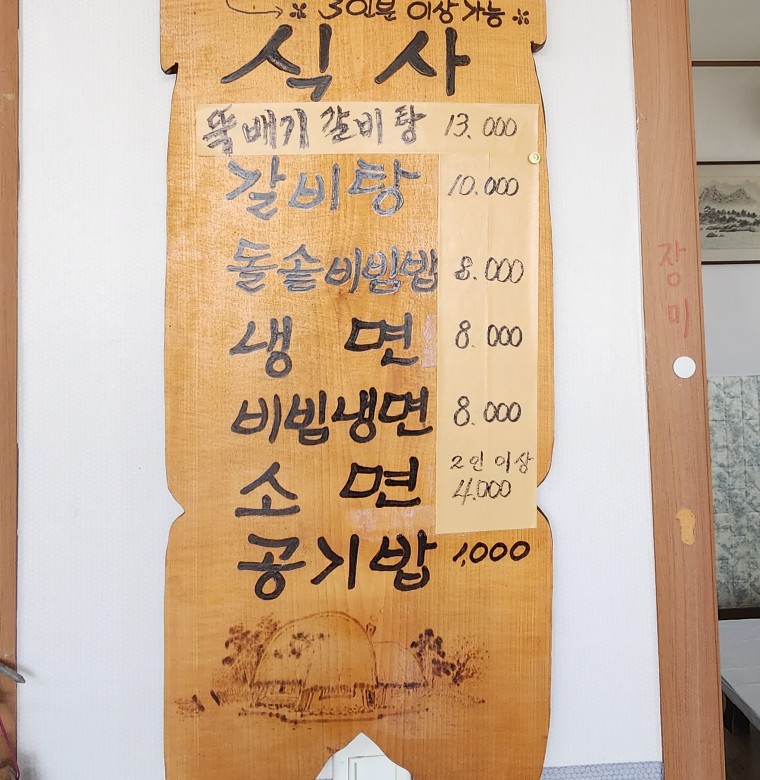 ※ 3인분 이상 가능 ※
식 사
뚝배기 갈비탕 13.000
갈비탕 10.000
돌솥비빔밥 8.000
냉 면 8.000
비빔냉면 8.000
소 면 2인 이상 4.000
공기밥 1,000
장미